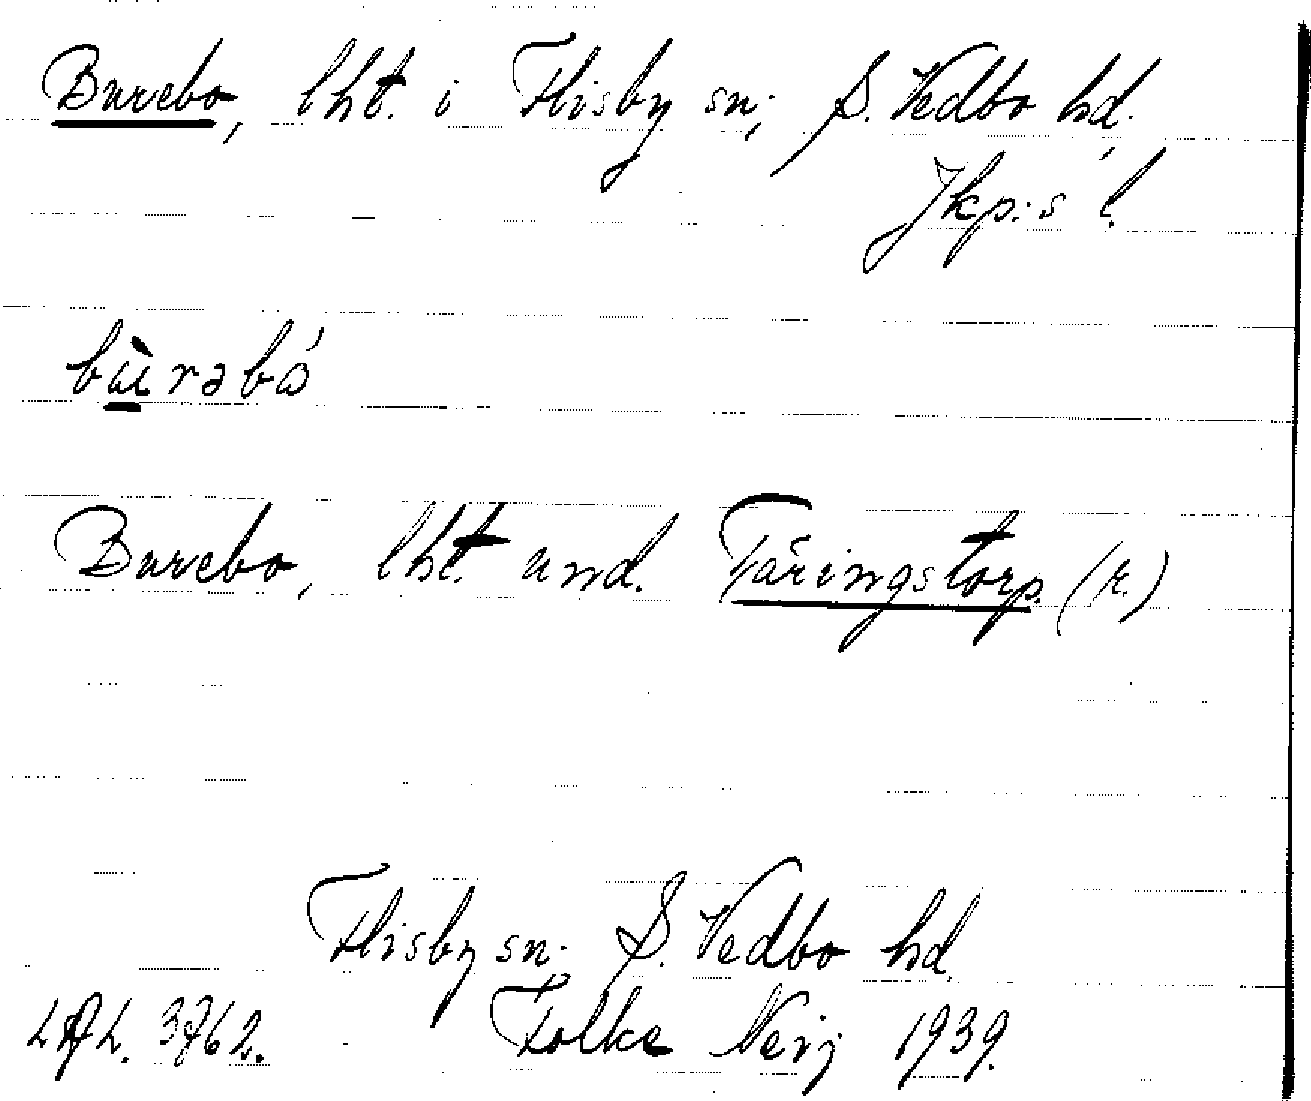 Burebo, lht. i Flisby sn; S. Vedbo hd.
Jkp:s l.
bùrəbó
Burebo, lht. und. Tåringstorp. (r.)
Flisby sn; S. Vedbo hd.
3762. Folke Neij 1939.